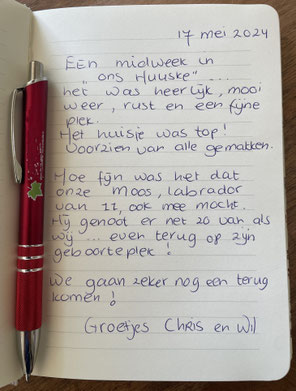 17 mei 2024
EEN midweek in
"ons Huuske" ...
het was heerlijk, mooi
weer, rust en een fijne
plek.
Het huisje was top!
Voorzien van alle gemakken.
Hoe fijn was het dat
onze Moos, labrador
van 11, ook mee mocht.
Hij genoot er net zo van als
wij ... even terug op zijn
geboorteplek!
We gaan zeker nog een terug
komen!
Groetjes Chris en Wil